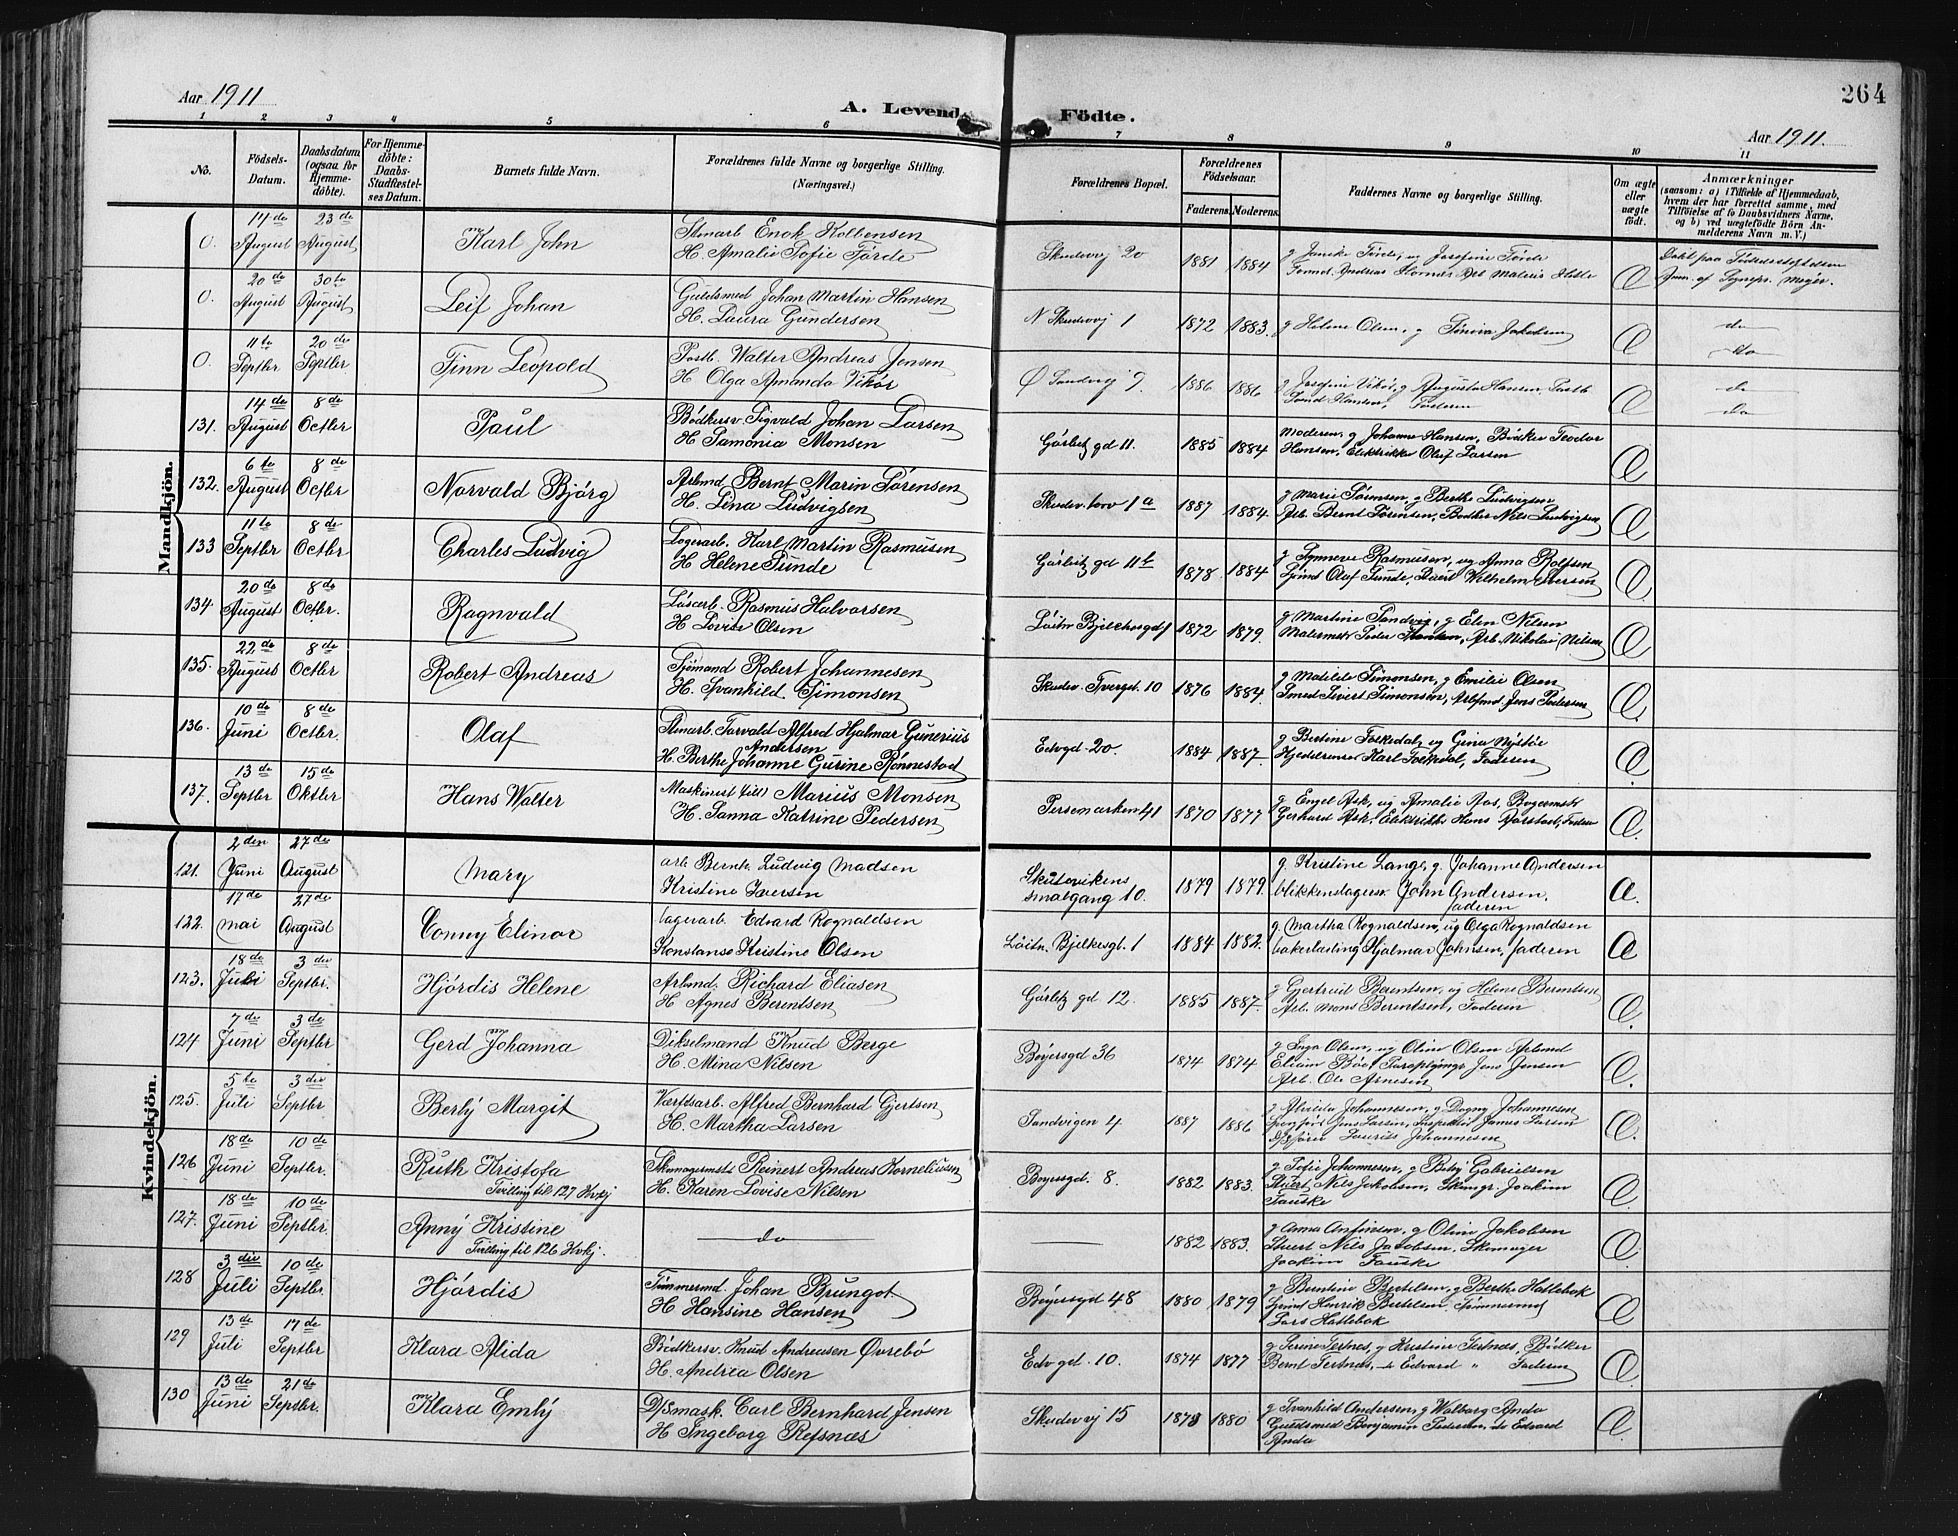 264
Aar 1911
A. Levende Födte.
Aar 1911.
1 2 3 4 5 6 7 8 9 10 11
No.
Födsels-Datum.
Daabsdatum (ogsaa for Hjemmedöbte).
For Hjemmedöbte: Daabs-Stadfæstelses Datum.
Barnets fulde Navn.
Forældrenes fulde Navne og borgerlige Stilling. (Næringsvei.)
Forældrenes Bopæl.
Forældrenes Födselsaar.
Faderens. Moderens.
Faddernes Navne og borgerlige Stilling.
Om ægte eller uægte födt.
Anmærkninger (saasom: a) i Tilfælde af Hjemmedaab, hvem der har forrettet samme, med Tilföielse af to Daabsvidners Navne, og b) ved uægtefödte Börn Anmelderens Navn m. V.)
Mandkjön.
0. 14 de August 23 de August Karl John Stmarb Enok Kolbensen
H. Amalie Sofie Förde Skudevj 20 1881 1884
0. 20 de August 30 te August Leif Johan Guldsmed Johan Martin Hansen
H. Laura Gundersen N Skudevj 1 1872 1883. g Helene Olsen, g Jakobsen do do
0. 11 te Septbr 20 de Septbr Finn Leopold Postb. Walter Andreas Jensen
H Olga Amanda Vikör Ø Sandvej 9. 1886 1886 g Josefine Vikör, g Augusta Hansen, Postb
Hansen, Faderen do do
131. 14 de August 8 de Octbr Paul Bödkersv. Sigvald Johan Larsen
H. Samonia Monsen Görbitz gd 11. 1885 1884 Moderen, g Johanne Hansen, Bödker Teodor
Hansen, Elektrikker Olaf Larsen
132. 6 te August 8 de Octbr Norvald Bjørg Arbmd Bernt Marin Sørensen
H. Lena Ludvigsen Skudev. torv 1 a 1887 1884. g Marie Sörensen, g Berthe Ludvigsen
Arb. Bernt Sörensen, Bödker Nils Ludvigsen
133 11 te Septbr 8 de Octbr Charles Ludvig Lagerarb. Karl Martin Rasmusen
H Helene Sunde Görbitz gd 11 b 1878. 1884 g Synneve Rasmusen, ug Anna Rolfsen
Sjömd Olaf Sunde, Stuert Wilhelm Iversen
134 20 de August 8 de Octbr. Ragnvald Lösarb. Rasmus Halvorsen
H Lovise Olsen Löitn Bjelkesgd 1 1872 1879. g Martine Sandvig, g Elen Nilsen
Malermstr Peder Hansen, Arb. Nikolai Nilsen
135. 22 de August 8 de Octbr Robert Andreas Sjømand Robert Johannesen
H. Svanhild Simonsen Skudev. Tvergt. 10 1876 1884. g Matilde Simonsen, g Emilie Olsen
Smed Sivert Simonsen, Arbfmd. Jens Pedersen
136. 10 de Juni 8 de Octbr. Olaf Stmarb. Torvald Alfred Hjalmar Gunerius
Andersen
H. Berthe Johanne Gurine Rønnestad Edvgd 20. 1884 1887. g Bertine Toskedal, ug Gina Nystøe
Hjulderenser Karl Toskedal, Faderen
137. 13 de Septbr 15 de Oktbr Hans Walter Maskinist Marius Monsen
H. Sanna Katrine Pedersen Persenarken 41 1870 1877 g Engel Ask, ug Amalie Aas, Bogermstr
Gerhard Ask, Elektrikk Hans Aarstad, Faderen
Kvindekjön.
121. 2 den Juni 27 de August Mary arb Bernh. Ludvig Madsen
Kristine Iversen Skutevikens smalgang 10. 1879 1879. g. Kristine Lange, g. Johanne Andersen
blikkenslagersv John Andersen, faderen
122. 17 de mai 27 de August Conny Elinor lagerarb. Edvard Rognaldsen
Konstanse Kristine Olsen Löitn. Bjelkesgt. 1 1884 1882. g. Martha Rognaldsen, ug Olga Rognaldsen
bakerlærling Hjalmar Johnsen, faderen
123. 18 de Juli 3 die Septbr. Hjördis Helene Arbmd. Richard Eliasen
H Agnes Berentsen Görbitz gd 12. 1885 1887. g Gjertrud Berentsen, ug Helene Berentsen
Arb. Mons Berentsen, Faderen
124 7 de Juni 3 de Septbr Gerd Johanna Dikselmand Knud Berge
H. Mina Nilsen Bøyersgd 36 1874 1874 g Inga Olsen, ug Oline Olsen Arbmd
Jens Jensen
Arb. Ole Arnesen
125. 5 te Juli 3 die Septbr Berly Margit Værftsarb. Alfred Bernhard Gjertsen
H. Martha Larsen Sandvigen 4 1887 1886 g Alvilde Johannesen, g Dagny Johannesen
Jens Larsen, Inspektör James Larsen
Laurits Johannesen
126 18 de Juni 10 de Septbr. Ruth Kristofa
Tvilling til 127 Kvkj Skomagermstr Reinert Andreas Korneliusen
H. Karen Lovise Nilsen Bøyersgd. 8. 1882 1883. g Sofie Johannesen, g Betsy Gabrielsen
Stuert Nils Jakobsen, Skomgr. Joakim
Fauske
127. 18 de Juni 10 de Septbr. Anny Kristine
Tvilling til 126 Kvkj. do 1882 1883. g Anna Antonsen, g Oline Jakobsen
Stuert Nils Jacobsen, Skomager
Joakim Fauske
128 3 die Juli 10 de Septbr Hjördis Tømmermd Johan Brungot
H Hansine Hansen Bøyersgd 48 1880 1879 g Bentine Bertelsen, g Berthe Hatlebak
Sjömd Henrik Bertelsen, Tömmermd
Lars Hatlebak
129 13 de Juli 17 de Septbr Klara Alida Bödkersv. Knud Andreasen Øvrebø
H. Andrea Olsen Edv gd. 10. 1874 1877 g Serine Tertnes, g Kristine Tertnes, Bödker
Bernt Tertnes, do Edvard " Faderen
130 13 de Juni 21 de Septbr. Klara Emly D/s mask. Carl Bernhard Jensen
H Ingeborg Refsnæs Skudevj 15 1878 1880 g Svanhild Andersen, g Walborg Anda
Guldsmed Benjamin Pedersen, do Edvard
Anda